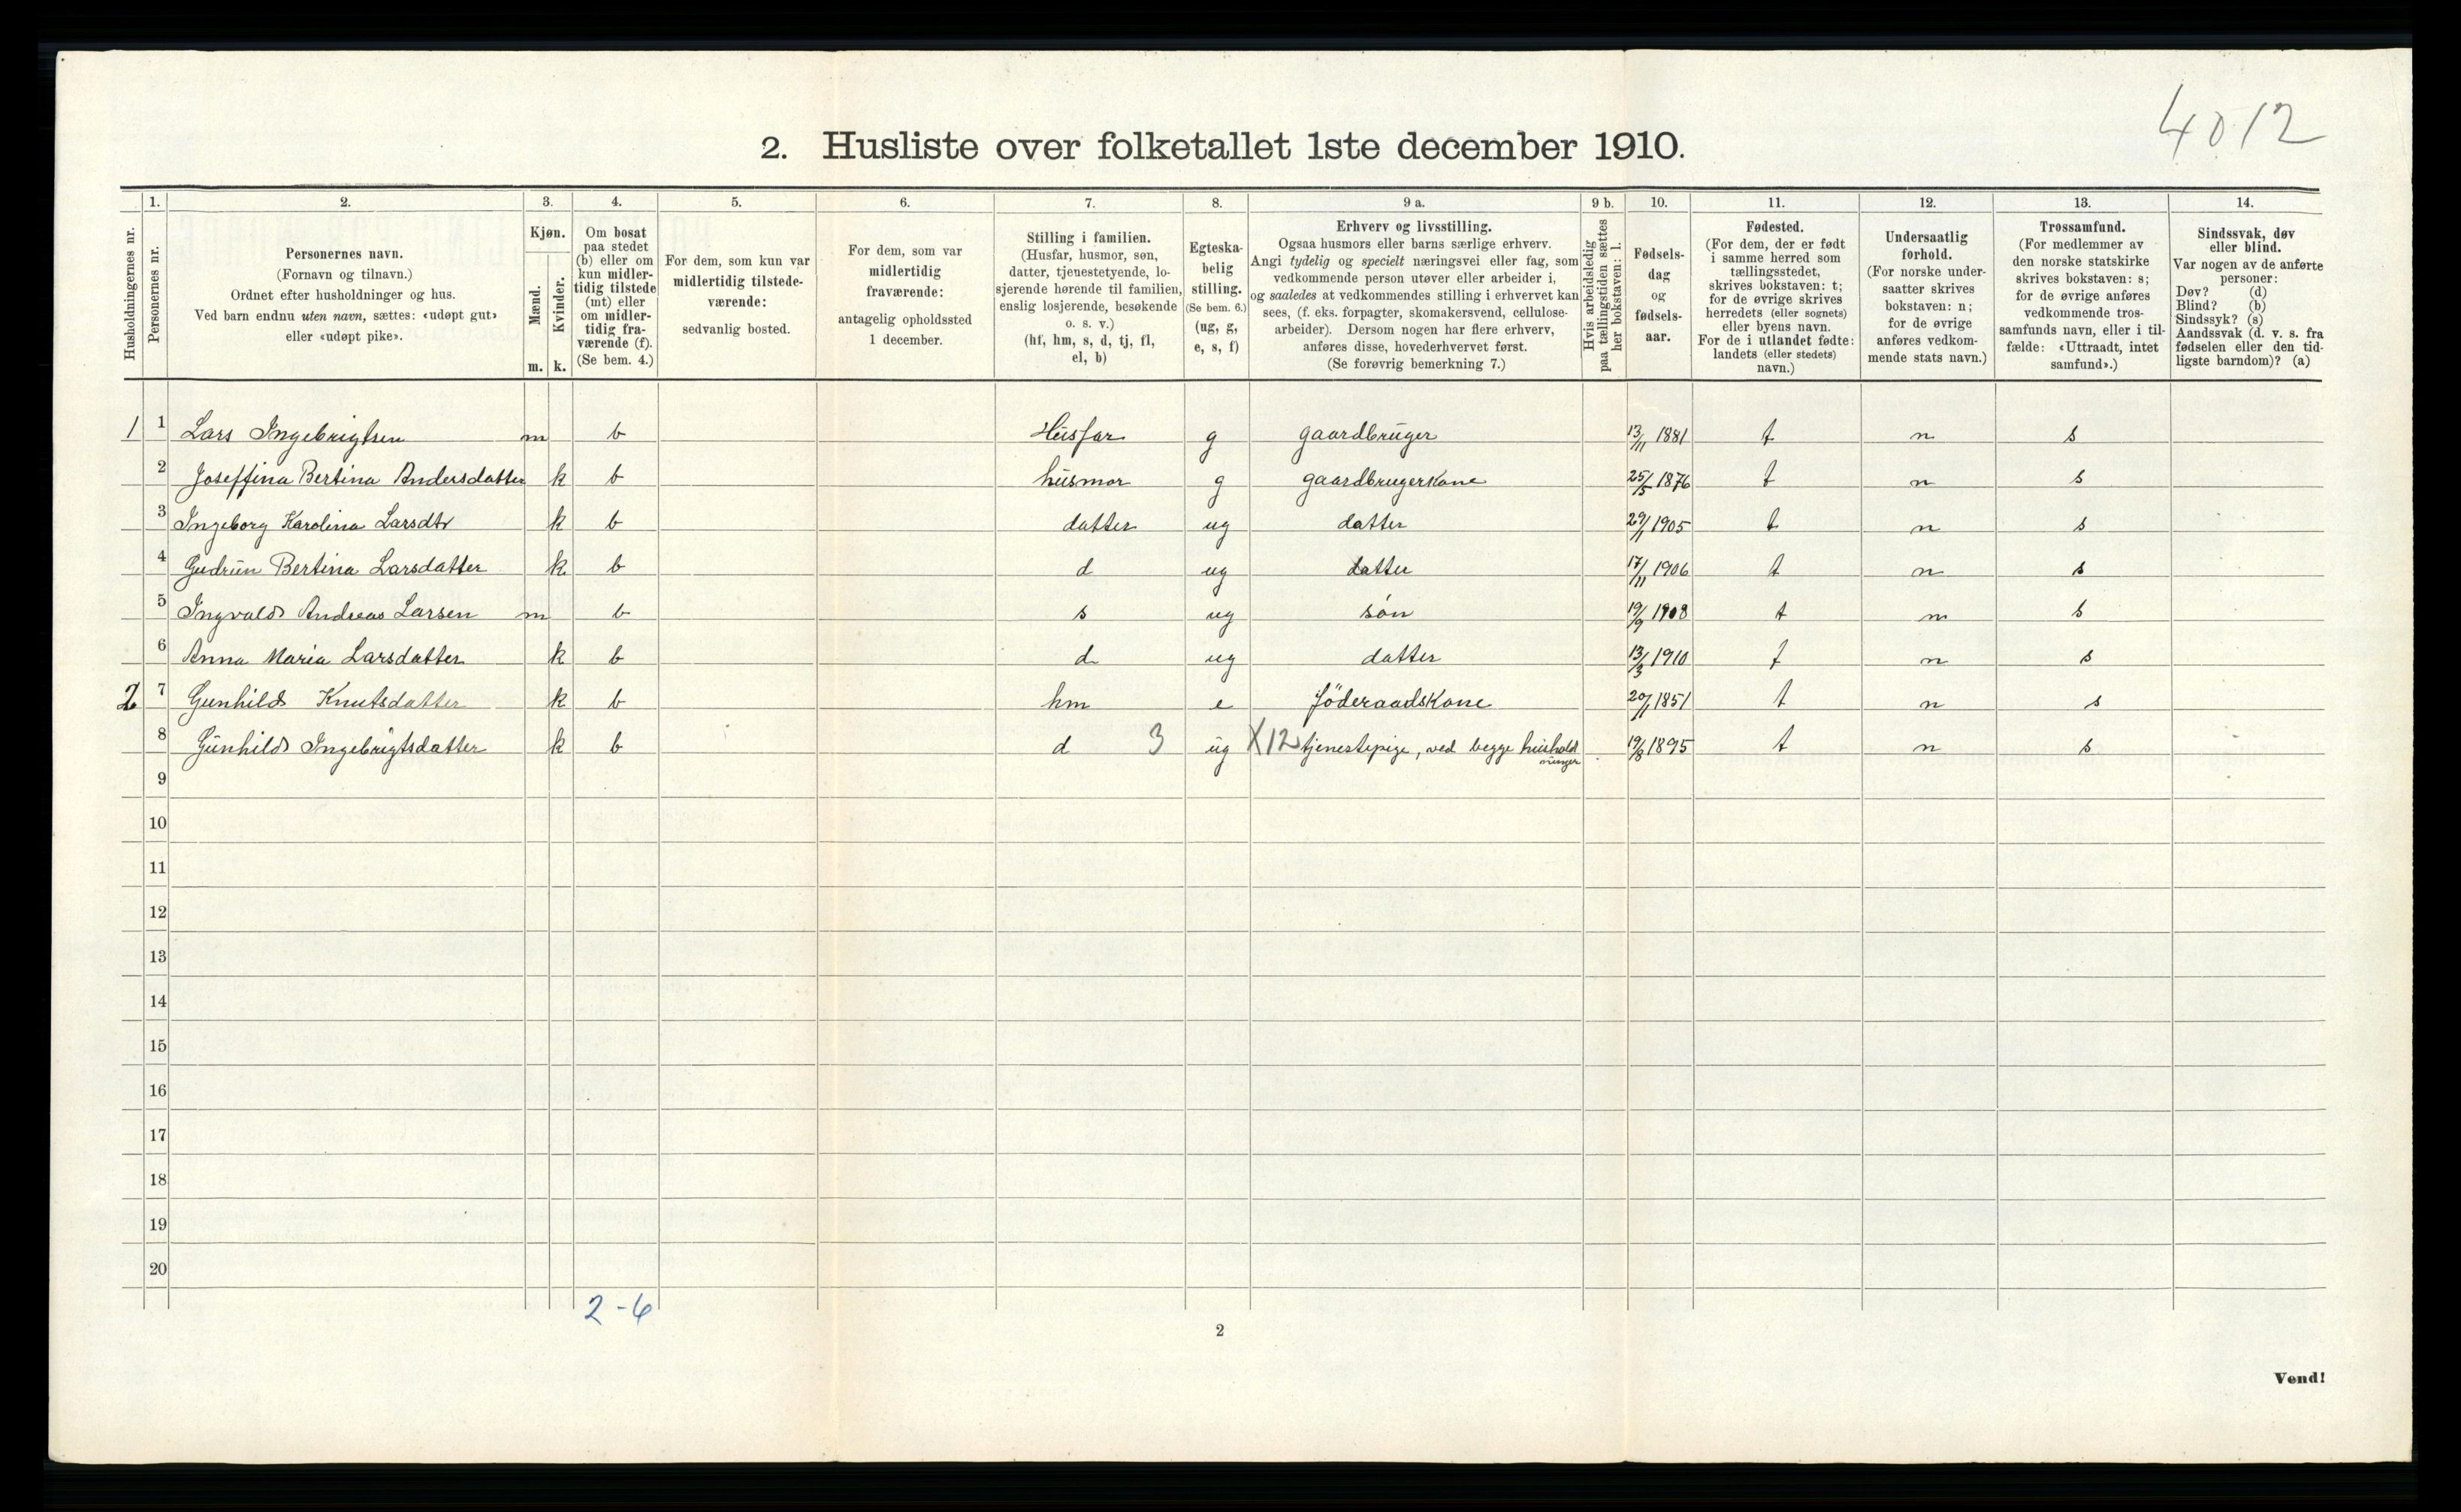 4012
2. Husliste over folketallet 1ste december 1910.
Husholdningernes nr.
1. Personernes nr.
2. Personernes navn.
(Fornavn og tilnavn.)
Ordnet efter husholdninger og hus.
Ved barn endnu uten navn, sættes: «udøpt gut»
eller «udøpt pike».
3. Kjøn.
Mænd. m.
Kvinder. k.
4. Om bosat
paa stedet
(b) eller om
kun midler-
tidig tilstede
(mt) eller
om midler-
tidig fra-
værende (f).
(Se bem. 4.)
5. For dem, som kun var
midlertidig tilstede-
værende:
sedvanlig bosted.
6. For dem, som var
midlertidig
fraværende:
antagelig opholdssted
1 december.
7. Stilling i familien.
(Husfar, husmor, søn,
datter, tjenestetyende, lo-
sjerende hørende til familien,
enslig losjerende, besøkende
o. s. v.)
(hf, hm, s, d, tj, fl,
el, b)
8. Egteska-
belig
stilling.
(Se bem. 6.)
(ug, g,
e, s, f)
9 a. Erhverv og livsstilling.
Ogsaa husmors eller barns særlige erhverv.
Angi tydelig og specielt næringsvei eller fag, som
vedkommende person utøver eller arbeider i,
og saaledes at vedkommendes stilling i erhvervet kan
sees, (f. eks. forpagter, skomakersvend, cellulose-
arbeider). Dersom nogen har flere erhverv,
anføres disse, hovederhvervet først.
(Se forøvrig bemerkning 7.)
9 b. Hvis arbeidsledig
paa tællingstiden sættes
her bokstaven: l.
10. Fødsels-
dag
og
fødsels-
aar.
11. Fødested.
(For dem, der er født
i samme herred som
tællingsstedet,
skrives bokstaven: t;
for de øvrige skrives
herredets (eller sognets)
eller byens navn.
For de i utlandet fødte:
landets (eller stedets)
navn.)
12. Undersaatlig
forhold.
(For norske under-
saatter skrives
bokstaven: n;
for de øvrige
anføres vedkom-
mende stats navn.)
13. Trossamfund.
(For medlemmer av
den norske statskirke
skrives bokstaven: s;
for de øvrige anføres
vedkommende tros-
samfunds navn, eller i til-
fælde: «Uttraadt, intet
samfund».)
14. Sindssvak, døv
eller blind.
Var nogen av de anførte
personer:
Døv? (d)
Blind? (b)
Sindssyk? (s)
Aandssvak (d. v. s. fra
fødselen eller den tid-
ligste barndom)? (a)
1 1 Lars Ingebrigtsen m b Husfar g gaardbruger 13/11 1881 t n s
2 Joseffina Bertina Andersdatter k b husmor g gaardbrugerkone 25/5 1876 t n s
3 Ingeborg Karolina Larsdtr k b datter ug datter 29/1 1905 t n s
4 Gudrun Bertina Larsdatter k b d ug datter 17/11 1906 t n s
5 Ingvald Andreas Larsen m b s ug søn 19/9 1908 t n s
6 Anna Maria Larsdatter k b d ug datter 13/3 1910 t n s
2 7 Gunhild Knutsdatter k b hm e föderaadskone 20/11 1851 t n s
8 Gunhild Ingebrigtsdatter k b d 3 ug X12 tjenestepige, ved begge hushold
ninger 19/8 1895 t n s
9
10
11
12
13
14
15
16
17
18
19
20
2-6
2
Vend!